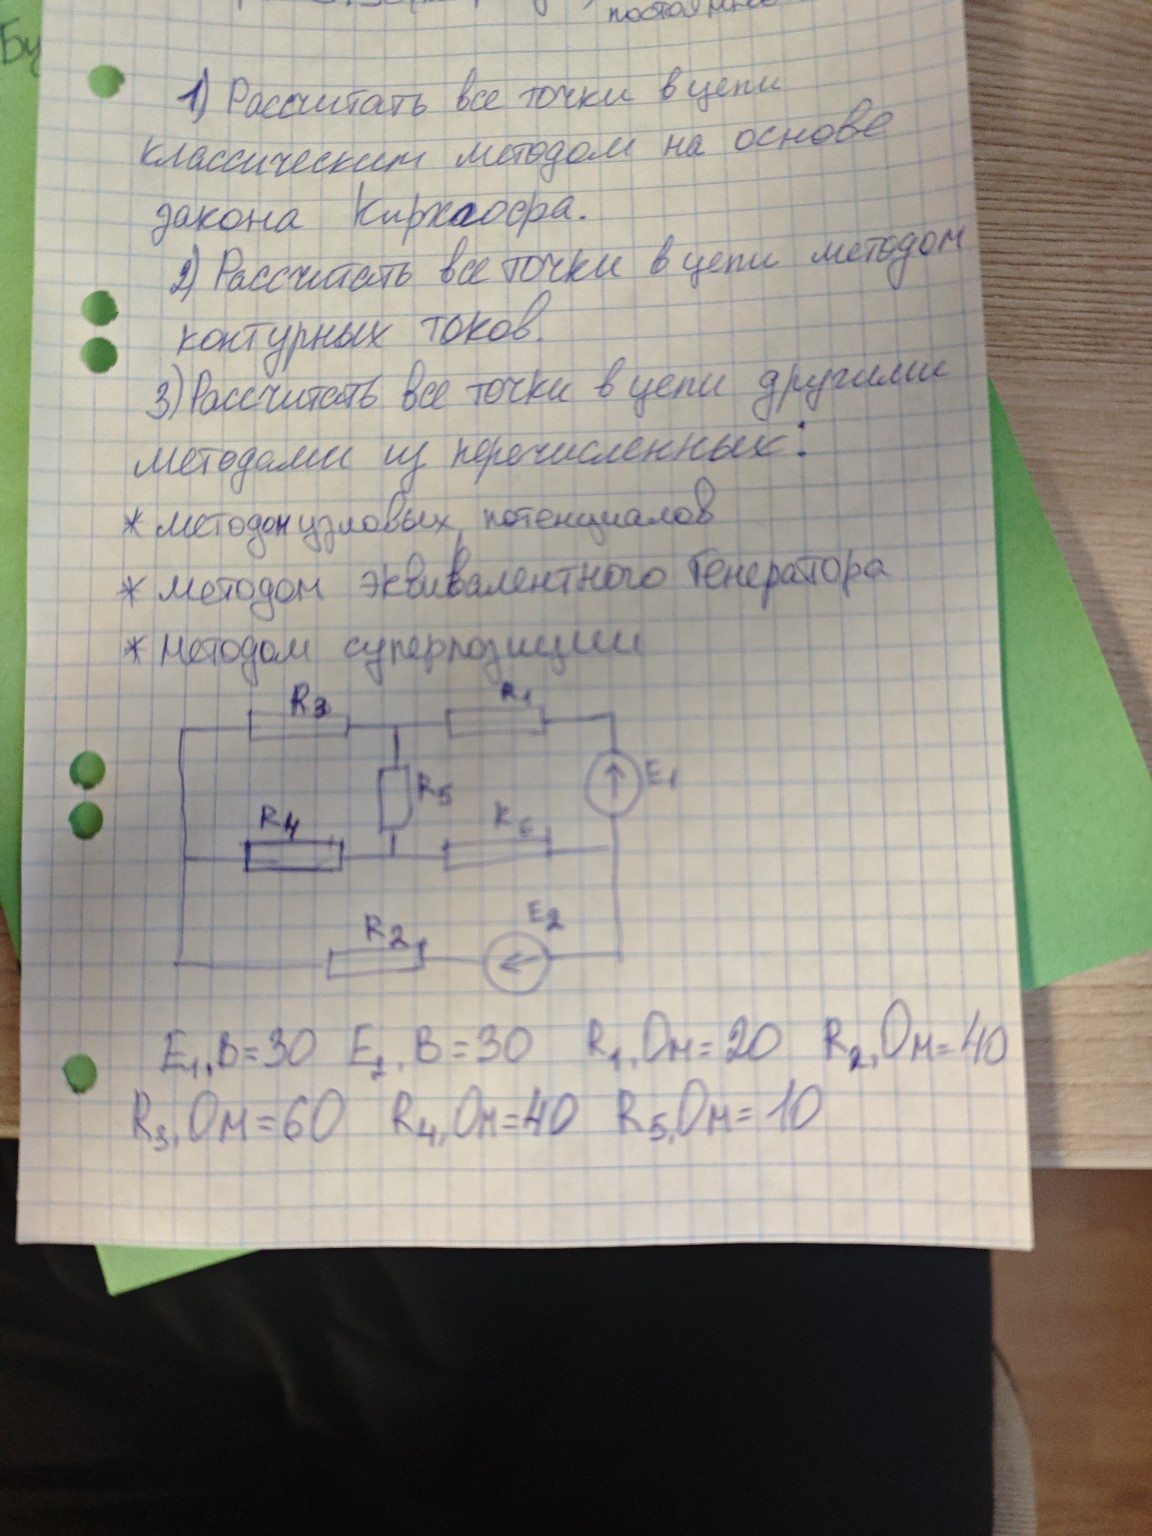 постоянное
Бу
1) Рассчитать все точки в цепи
классическим методом на основе
закона Кирхгофа.
2) Рассчитать все точки в цепи методом
контурных токов.
3) Рассчитать все точки в цепи другими
методами из перечисленных:
* методом узловых потенциалов
* методом эквивалентного генератора
* методом суперпозиции
R3 R1
R5 E1
R4 R6
R2 E2
E1,В=30 E2,В=30 R1,Ом=20 R2,Ом=40
R3,Ом=60 R4,Ом=40 R5,Ом=10